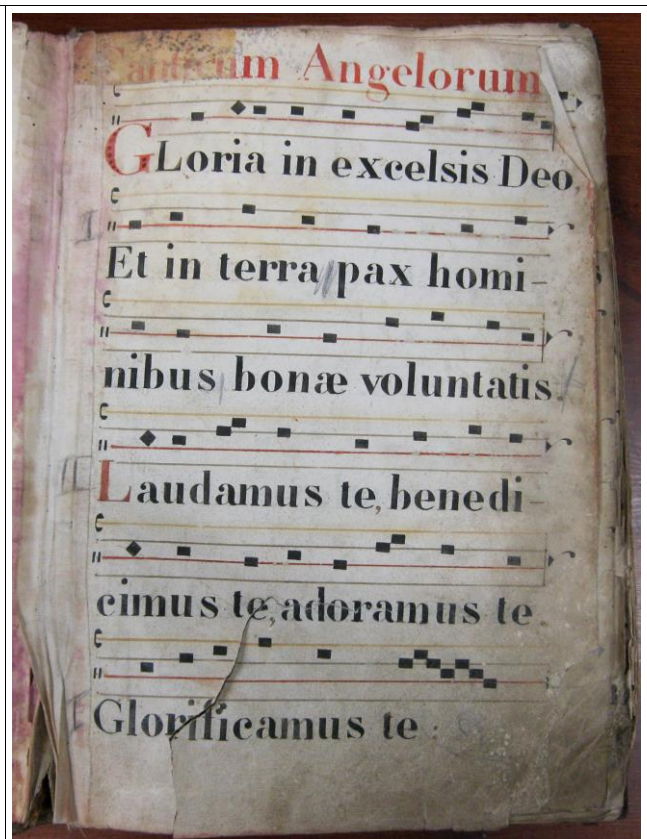 Canticum Angelorum
GLoria in excelsis Deo
Et in terra pax homi-
nibus bonæ voluntatis.
Laudamus te, benedi-
cimus te, adoramus te
Glorificamus te :